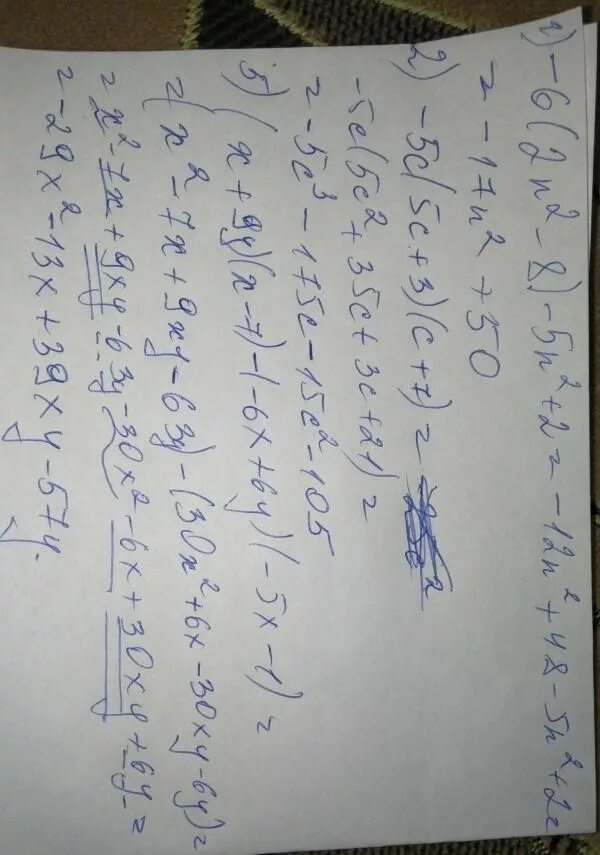 1) -6(2n² - 8) - 5n² + 2 = -12n² + 48 - 5n² + 2 =
= -17n² + 50
2) -5c(5c + 3)(c + 7) =
-5c(5c² + 35c + 3c + 21) =
= -5c³ - 175c - 15c² - 105
5) (x + 9y)(x - 7) - (-6x + 6y)(-5x - 1) =
= (x² - 7x + 9xy - 63y) - (30x² + 6x - 30xy - 6y) =
= x² - 7x + 9xy - 63y - 30x² - 6x + 30xy + 6y =
= -29x² - 13x + 39xy - 57y.